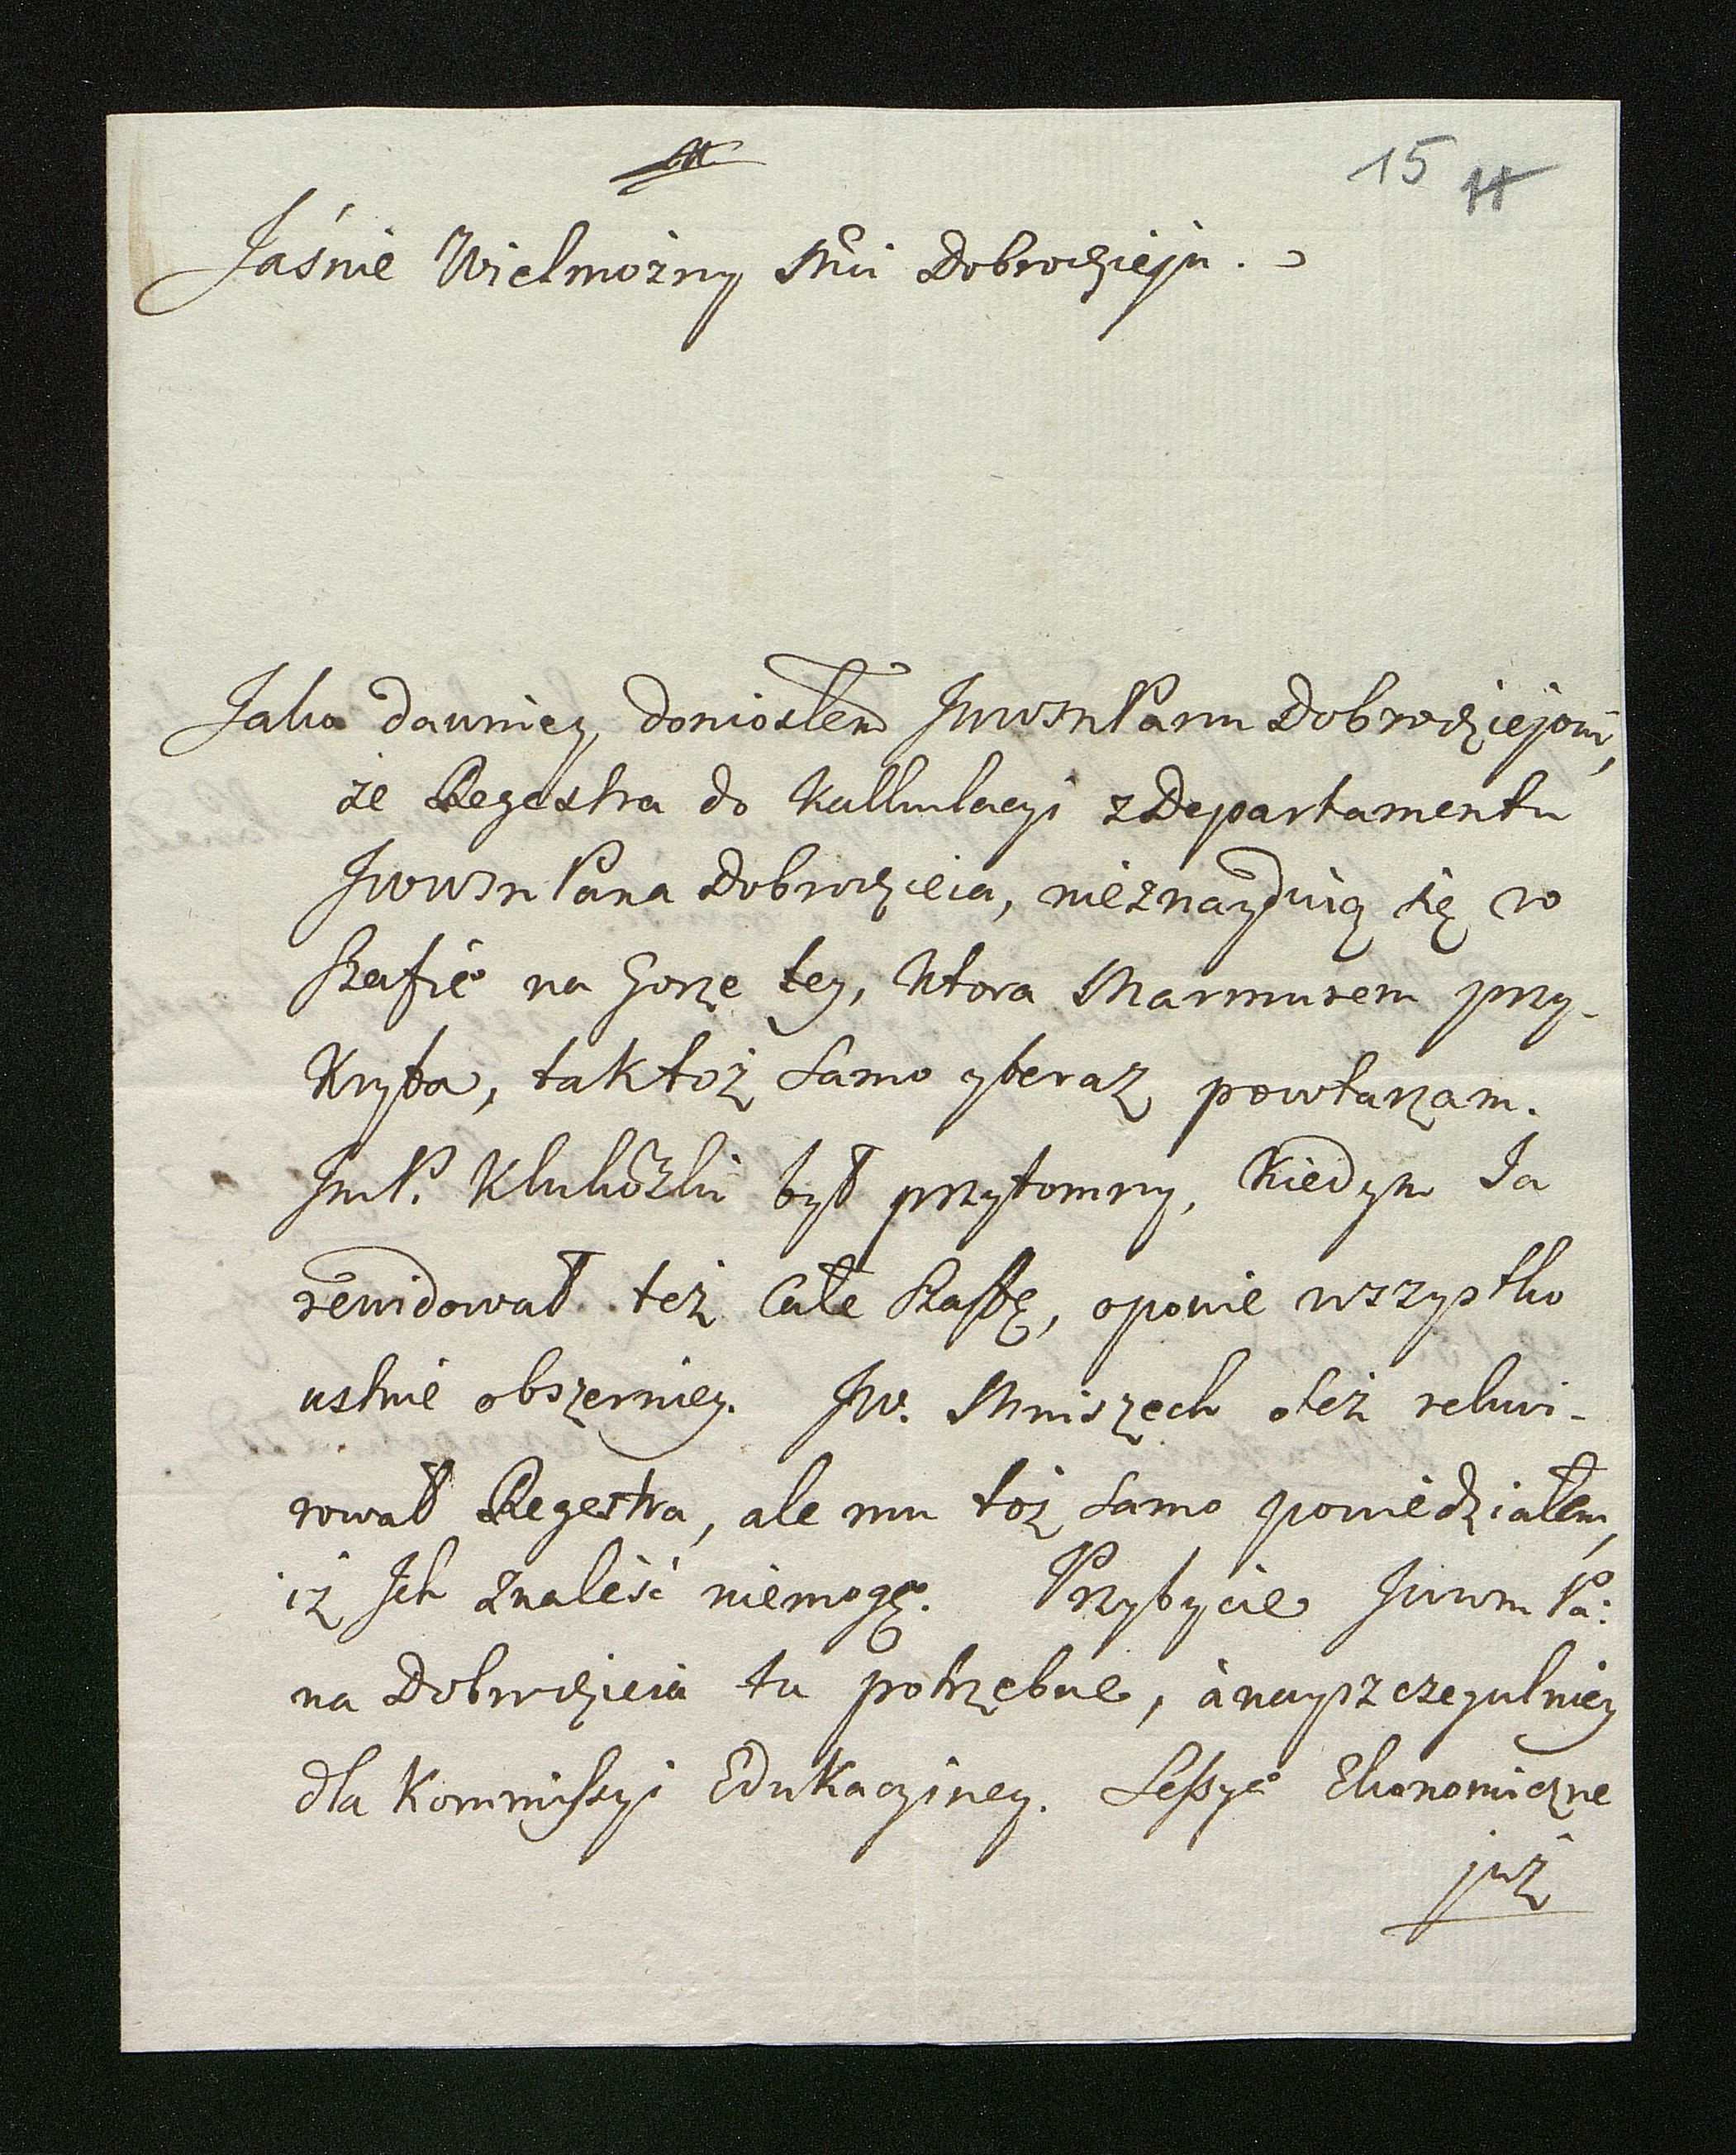 15
Jaśnie Wielmożny Mci Dobrodzieju.
Jako dawniey doniosłem JWWMPanu Dobrodziejowi,
że Regestra do Kalkulacyi z Departamentu
JWWMPana Dobrodzieia, nieznayduią się w
Szafie na Gorze tey, Ktora Marmurem przy-
Kryta, taktoż Samo yteraz powtarzam.
JmP. Klukoski był przytomny, Kiedym Ja
rewidował też Całe Szafę, opowie wszystko
ustnie obszerniey. JW. Mniszech też rekwi-
rował Regestra, ale mu toż Samo powiedziałem,
iż Jch Znaleść niemogę. Przybycie JWWM Pa:
na Dobrodzieia tu potrzebne, á nayszczegulniey
dla Kommissyi Edukacyiney. Sessye Ekonomiczne
już